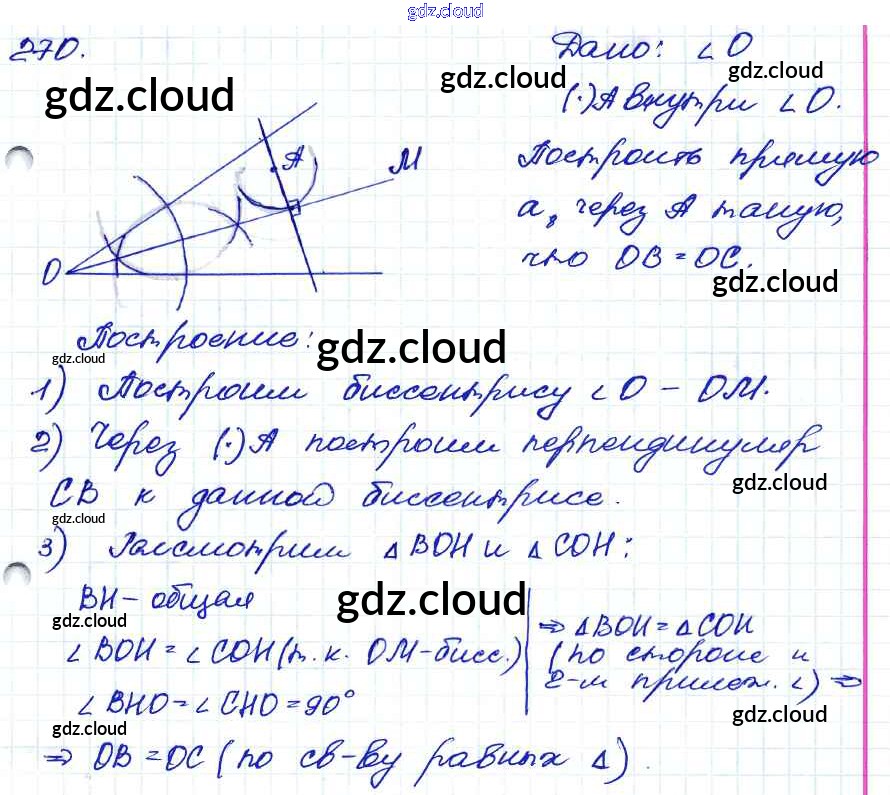 gdz.cloud
270.
gdz.cloud
Дано: ∠O
gdz.cloud
(·)A внутри ∠O.
Построить прямую
a, через A такую,
что OB = OC.
gdz.cloud
A
M
O
Построение:
gdz.cloud
gdz.cloud
1) Построим биссектрису ∠O – OM.
2) Через (·)A построим перпендикуляр
gdz.cloud
CB к данной биссектрисе.
gdz.cloud
3) Рассмотрим △BOH и △COH:
BH – общая
gdz.cloud
gdz.cloud
∠BOH = ∠COH (т.к. OM – бисс.)
∠BHO = ∠CHO = 90°
⇒ △BOH = △COH
(по стороне и
2-м прилеж. ∠) ⇒
gdz.cloud
gdz.cloud
⇒ OB = OC (по св-ву равных △).